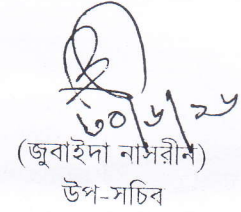 ৩০/৬/২৬
(জুবাইদা নাসরীন)
উপ-সচিব